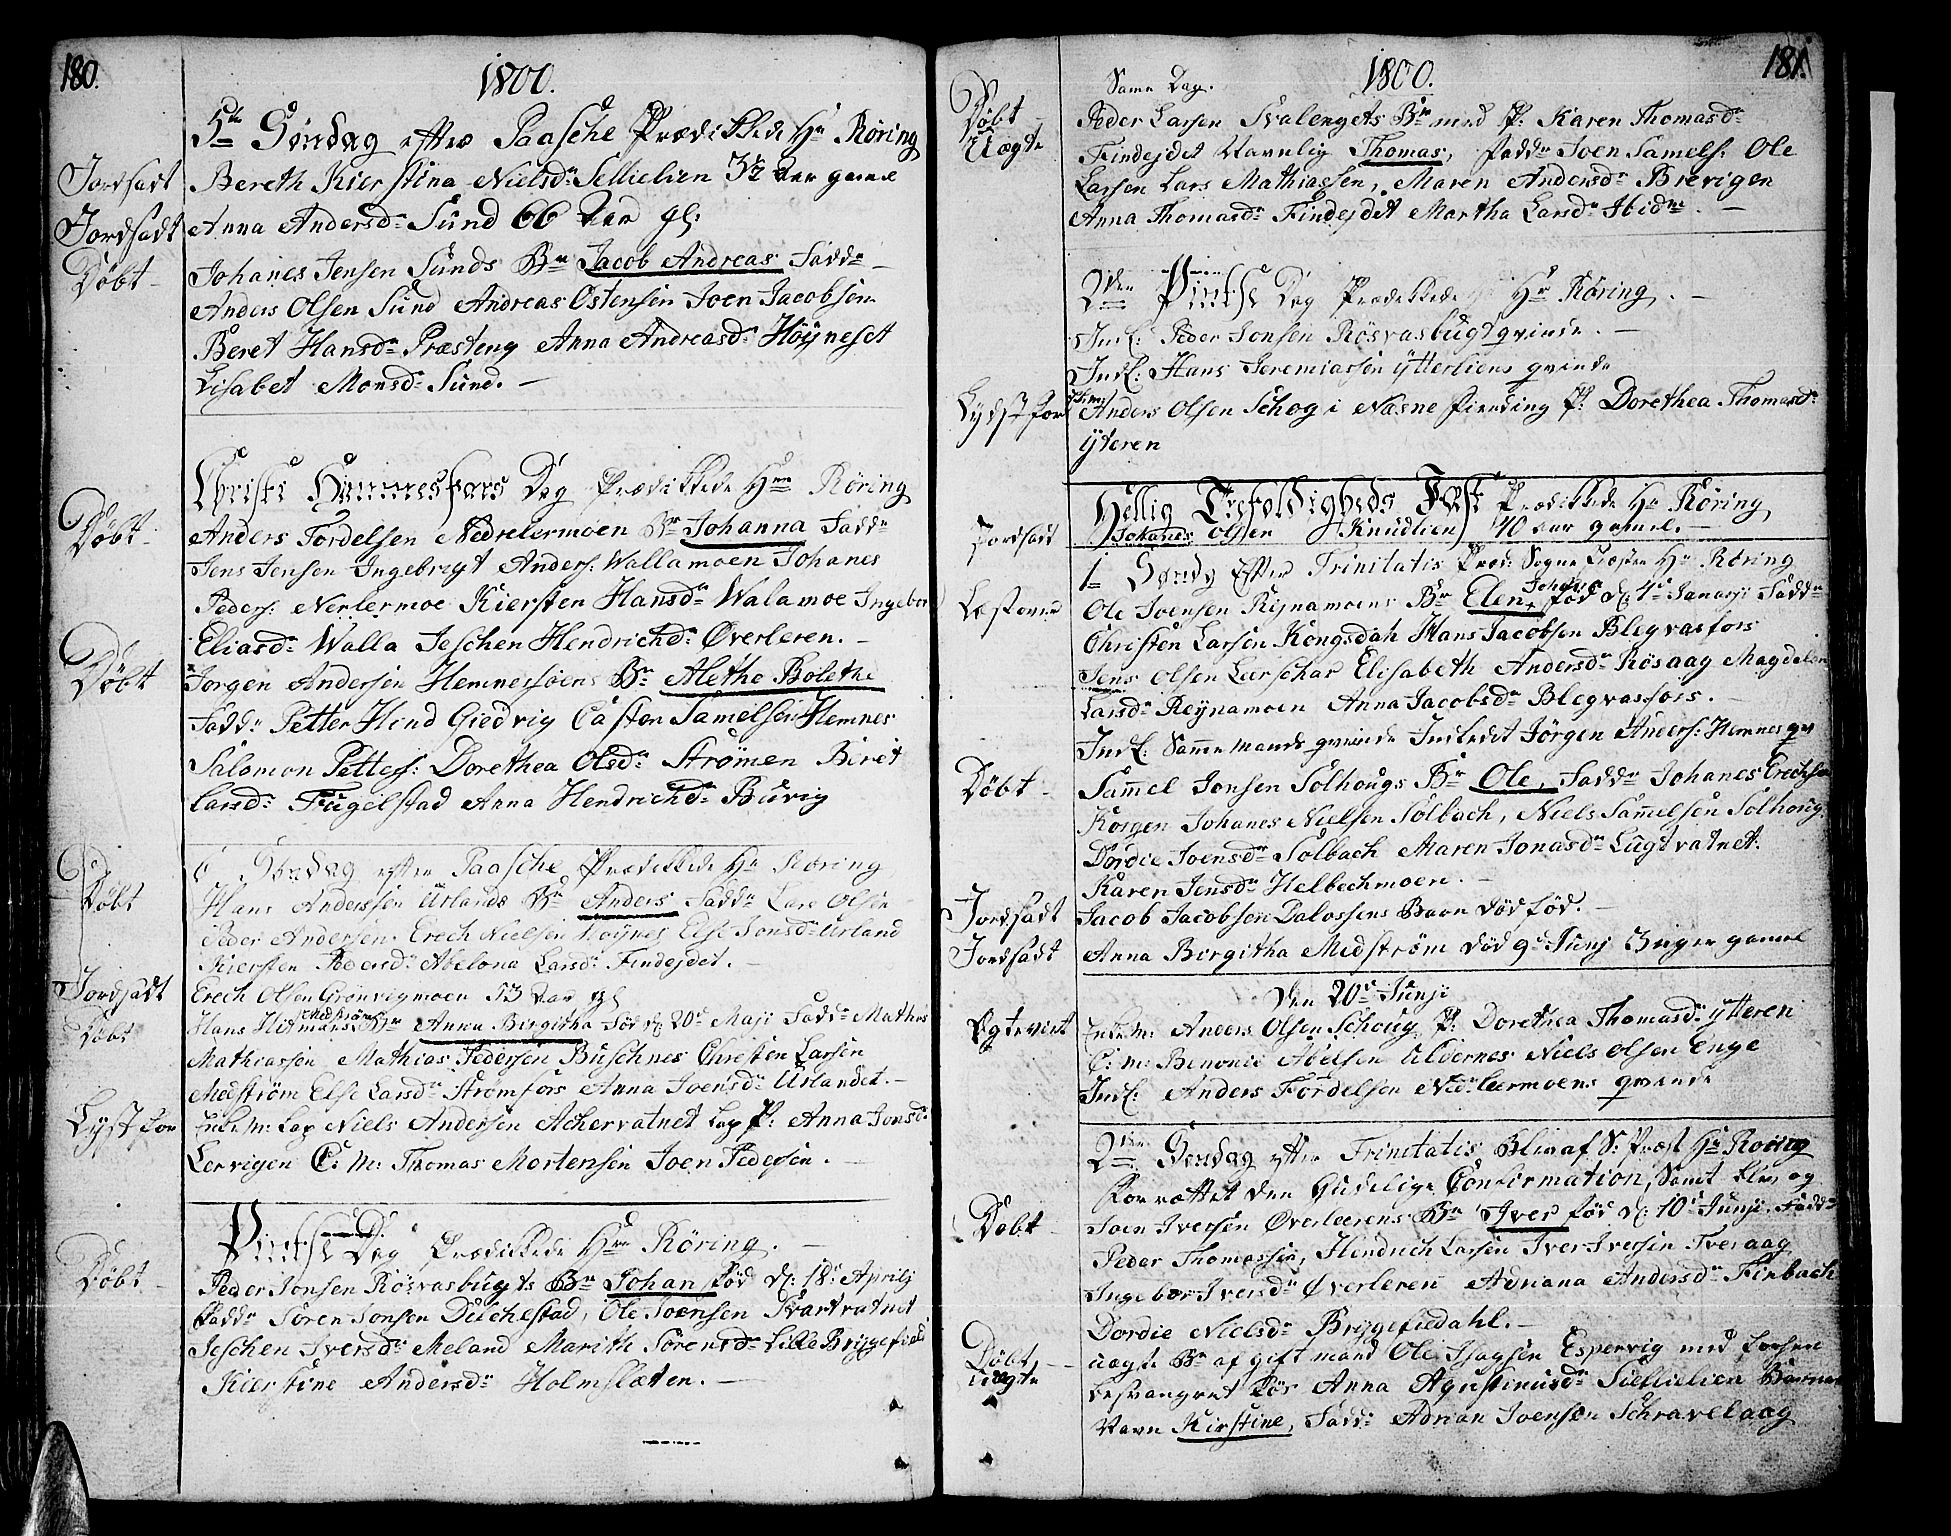 180.
1800.
5te Søndag efter Paasche Prædikkede Hr Røring
Jordfadt Bereth Kierstina Nielsdr Sellielien 3½ aar gamel
Jordfadt Anna Andersdr Sund 66 Aar gl:
Døbt - Johanes Jensen Sunds Bn Jacob Andreas Fadde
Anders Olsen Sund Andreas Ostensen Joen Jacobsen
Beret Hansdr Præsteng Anna Andreasdr Høyneset
Lisabet Monsdr Sund. -
Christi Himmelfars Dag Prædikkede Hrr Røring
Døbt - Anders Fordelsen Nedrelermoen Bn Johanna Fadde
Jens Jensen Ingebrigt Anders: Wallamoen Johanes
Peders: Nerlermoe Kiersten Hansdr Walamoe Ingebor
Eliasdr Walla Jeschen Hendrichdr Øverleren. -
Døbt Jørgen Andersen Hemnessøens Bn Alethe Bolethe
Faddr Petter Hind Giedvig Caston Samelsen Hemnes
Salomon Petters: Dorethea Olsdr Strømen Biret
Larsdr Fugelstad Anna Hendrichdr Buvig
6 Søndag efter Paasche Prædikkede Hr Røring
Døbt Hans Anderssen Urlands Bn Anders Fadde Lars Olsen
Peder Andersen Erech Nielsen Høynes Else Jonsdr Urland
Kiersten Pedersdr Abelona Larsdr Findejdet. -
Jordfadt Erech Olsen Grønvigmoen 53 Aar gl
Døbt Hans Hitmans Medstrøm Bn Anna Birgitha Fød d: 20de Maji Fadde Mathis
Mathiassen Mathias Pedersen Buschnes Christen Larsen
Medstrøm Else Larsdr Strømfors Anna Joensdr Urlandet. -
Lyst for Enke M: Lap Niels Andersen Achervatnet Lap P: Anna Jonsdr
Lervigen C: M: Thomas Mortensen Joen Pedersen. -
Pintse Dag Prædikkede Hrr Røring. -
Døbt - Peder Jonsen Røsvasbugts Bn Johan Fød d: 18de Aprilj
Fadde Søren Jonsen Delchestad, Ole Joensen Svartvatnet
Jeschen Iversdr Meland Marith Sørensdr Lille Bryggefield
Kierstine Andersdr Holmslæten. -
181.
1800.
Same Dag.
Døbt Uægte Peder Larsen Svalengets Bn med P: Karen Thomasdr
Findejdet Navnlig Thomas, Fadde Joen Samels: Ole
Larsen Lars Mathiassen, Maren Andersdr Brevigen
Anna Thomasdr Findejdet Martha Larsdr Ibidm. -
2den Pintse Dag Prædikkede Hr Røring. -
Indl: Peder Jonsen Røsvasbugt qvinde. -
Indl: Hans Jeremiassen Ytterliens qvinde
Lydst for Anders Olsen Schog i Næsne Fierding P: Dorethea Thomasdr
Yteren
Hellig Trefoldigheds Fest Prædikkede Hr Røring
Jordfadt Johanes Olsen Knudlien 40 aar gamel. -
1te Søndg Efter Trinitatis Præd: Sogne Presten Hr Røring
Ole Joensen Rejnamoens Bn Elen Johana Fød d: 4de Januarji Fadde
Christen Larsen Kongsdah Hans Jacobsen Blegvasfors
Jens Olsen Leerschar Elisabeth Andersdr Røsaag Magdelen
Larsdr Rejnamoen Anna Jacobsdr Blegvasfors. -
Indl: Samme mands qvinde Indledet Jørgen Anders: Hemnes qv
Døbt - Samel Jonsen Solhougs Bn Ole, Fadde Johanes Erechsen
Korgen Johanes Nielsen Solbach, Niels Samelsen Solhoug.
Dordie Joensdr Solbach Maren Jonasdr Lugtvatnet.
Karen Jensdr Helbechmoen. -
Jordfadt Jacob Jacobsen Dalossens Barn død fød. -
Jordfadt Anna Birgitha Medstrøm død 9de Junj 3 uger gamel
Den 20de Junji
Egteviet Enke M: Anders Olsen Schoug P: Dorethea Thomasdr Ytteren
C: M: Benonie Abelsen Uldernes Niels Olsen Enge
Indl: Anders Fordelsen Ned: leermoens qvinde
2den Søndag efter Trinitatis Blev af S: Præst Hr Røring
forrættet den Gudelige Confirmation, Samt blev og
Døbt Joen Iversen Øverleerens Bn Iver fød d: 10de Junji. Fadde
Peder Thomassen, Hendrich Larsen Iver Iversen Tveraag
Ingebor Iversdr Øverleren Adriana Andersdr Finbach
Dordie Nielsdr Bryggefiedahl. -
Døbt uægte - uægte Bn af gift mand Ole Isagsen Espervig med forhen
besvangret Pør Anna Agustinusdr Sellielien Barnets
Navn Kirstine, Fadd: Adrian Joensen Schravelaag